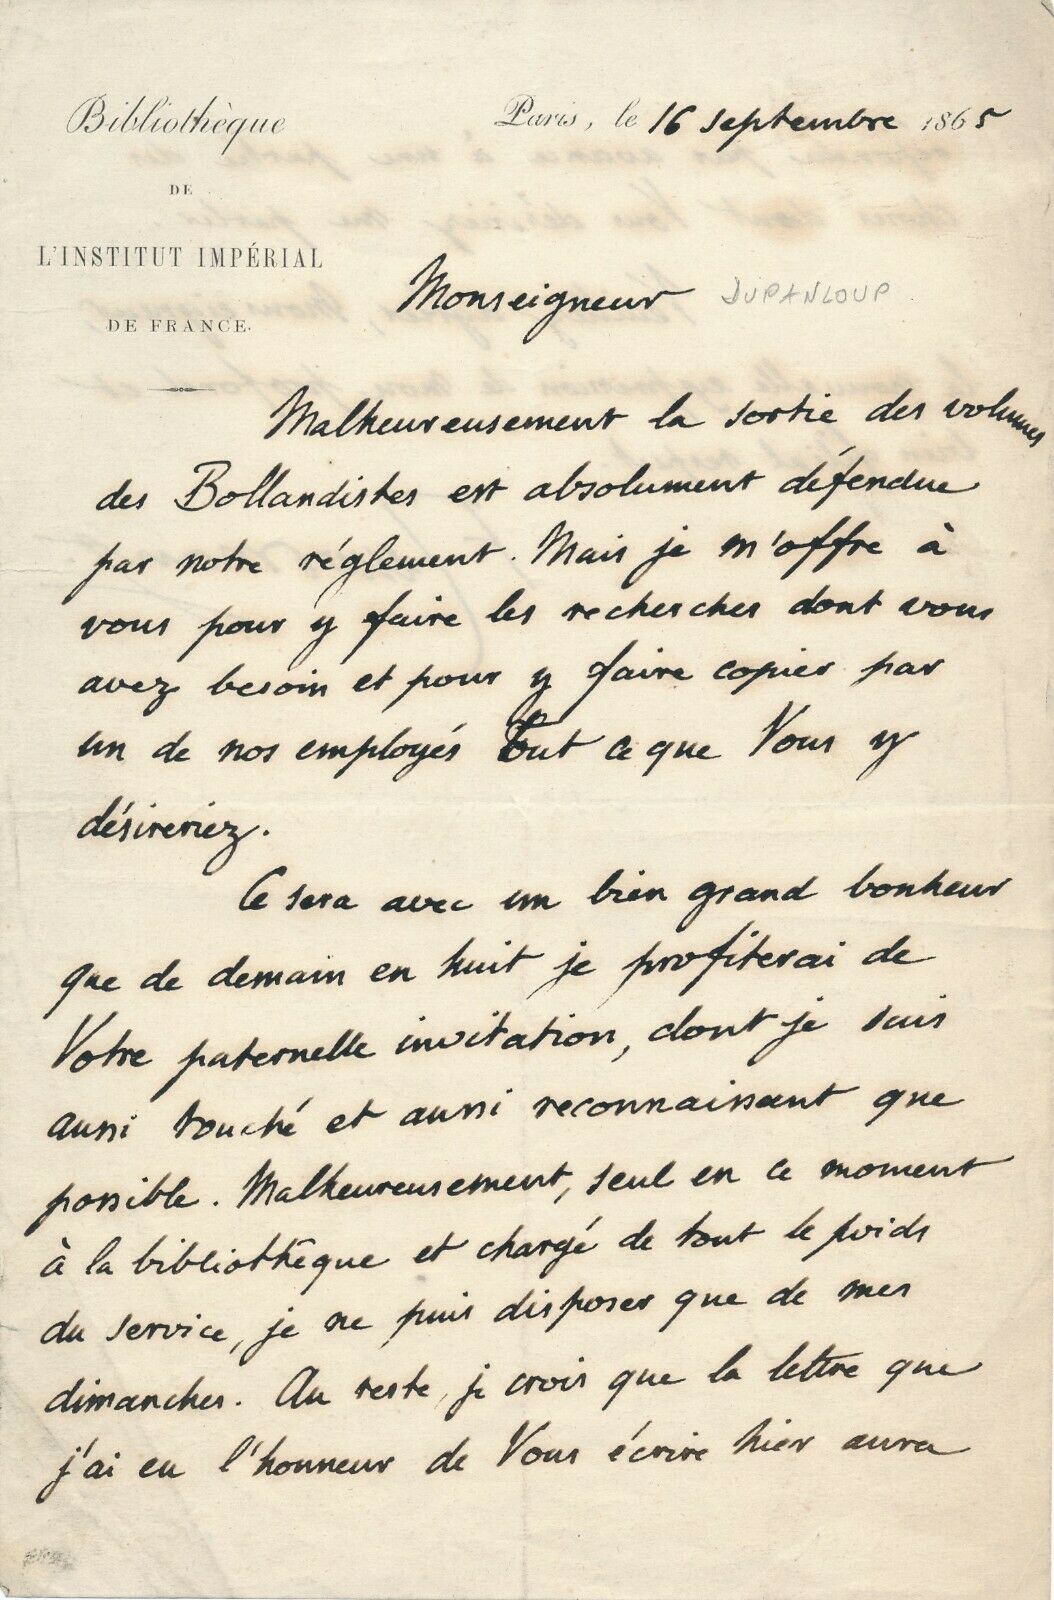 Bibliothèque
DE
L'INSTITUT IMPÉRIAL
DE FRANCE.
Paris, le 16 septembre 1865
Monseigneur DUPANLOUP
Malheureusement la sortie des volumes
des Bollandistes est absolument défendue
par notre réglement. Mais je m'offre à
vous pour y faire les recherches dont vous
avez besoin et pour y faire copier par
un de nos employés Tout ce que Vous y
désireriez.
Ce sera avec un bien grand bonheur
que de demain en huit je profiterai de
Votre paternelle invitation, dont je suis
aussi touché et aussi reconnaissant que
possible. Malheureusement, seul en ce moment
à la bibliothèque et chargé de tout le poids
du service, je ne puis disposer que de mes
dimanches. Au reste, je crois que la lettre que
j'ai eu l'honneur de Vous écrire hier aura